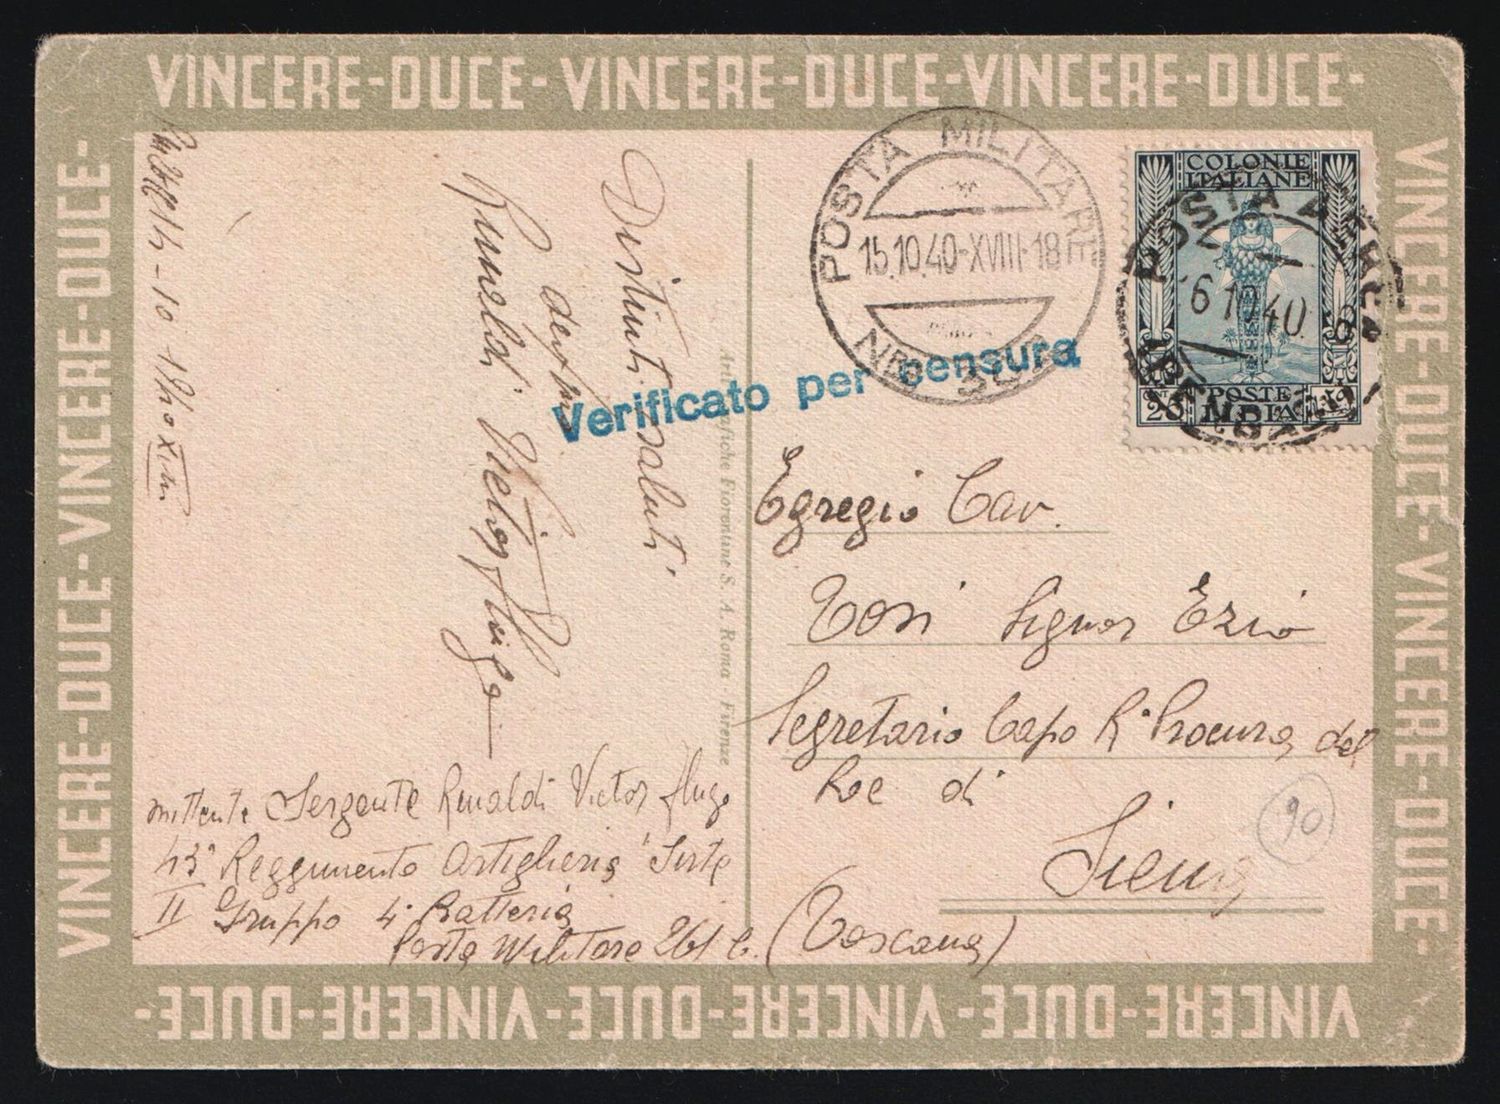 VINCERE-DUCE-VINCERE-DUCE-VINCERE-DUCE-
VINCERE-DUCE-VINCERE-DUCE-
VINCERE-DUCE-VINCERE-DUCE-
VINCERE-DUCE-VINCERE-DUCE-VINCERE-DUCE-
14-10-1940 XVIII
Distinti saluti
Rinaldi Victor Hugo
Verificato per censura
Arti Grafiche Fiorentine S. A. Roma - Firenze
POSTA MILITARE
15.10.40-XVIII-18
COLONIE
ITALIANE
POSTA AEREA
6 10 40
POSTE
LIBIA
Egregio Cav.
Tosi Signor Ezio
Segretario Capo R° Procura del
Rre di
Siena
(Toscana)
90
mittente Sergente Rinaldi Victor Hugo
43° Reggimento Artiglieria "Sirte
II Gruppo 4° Batteria
Posta Militare 261 C.